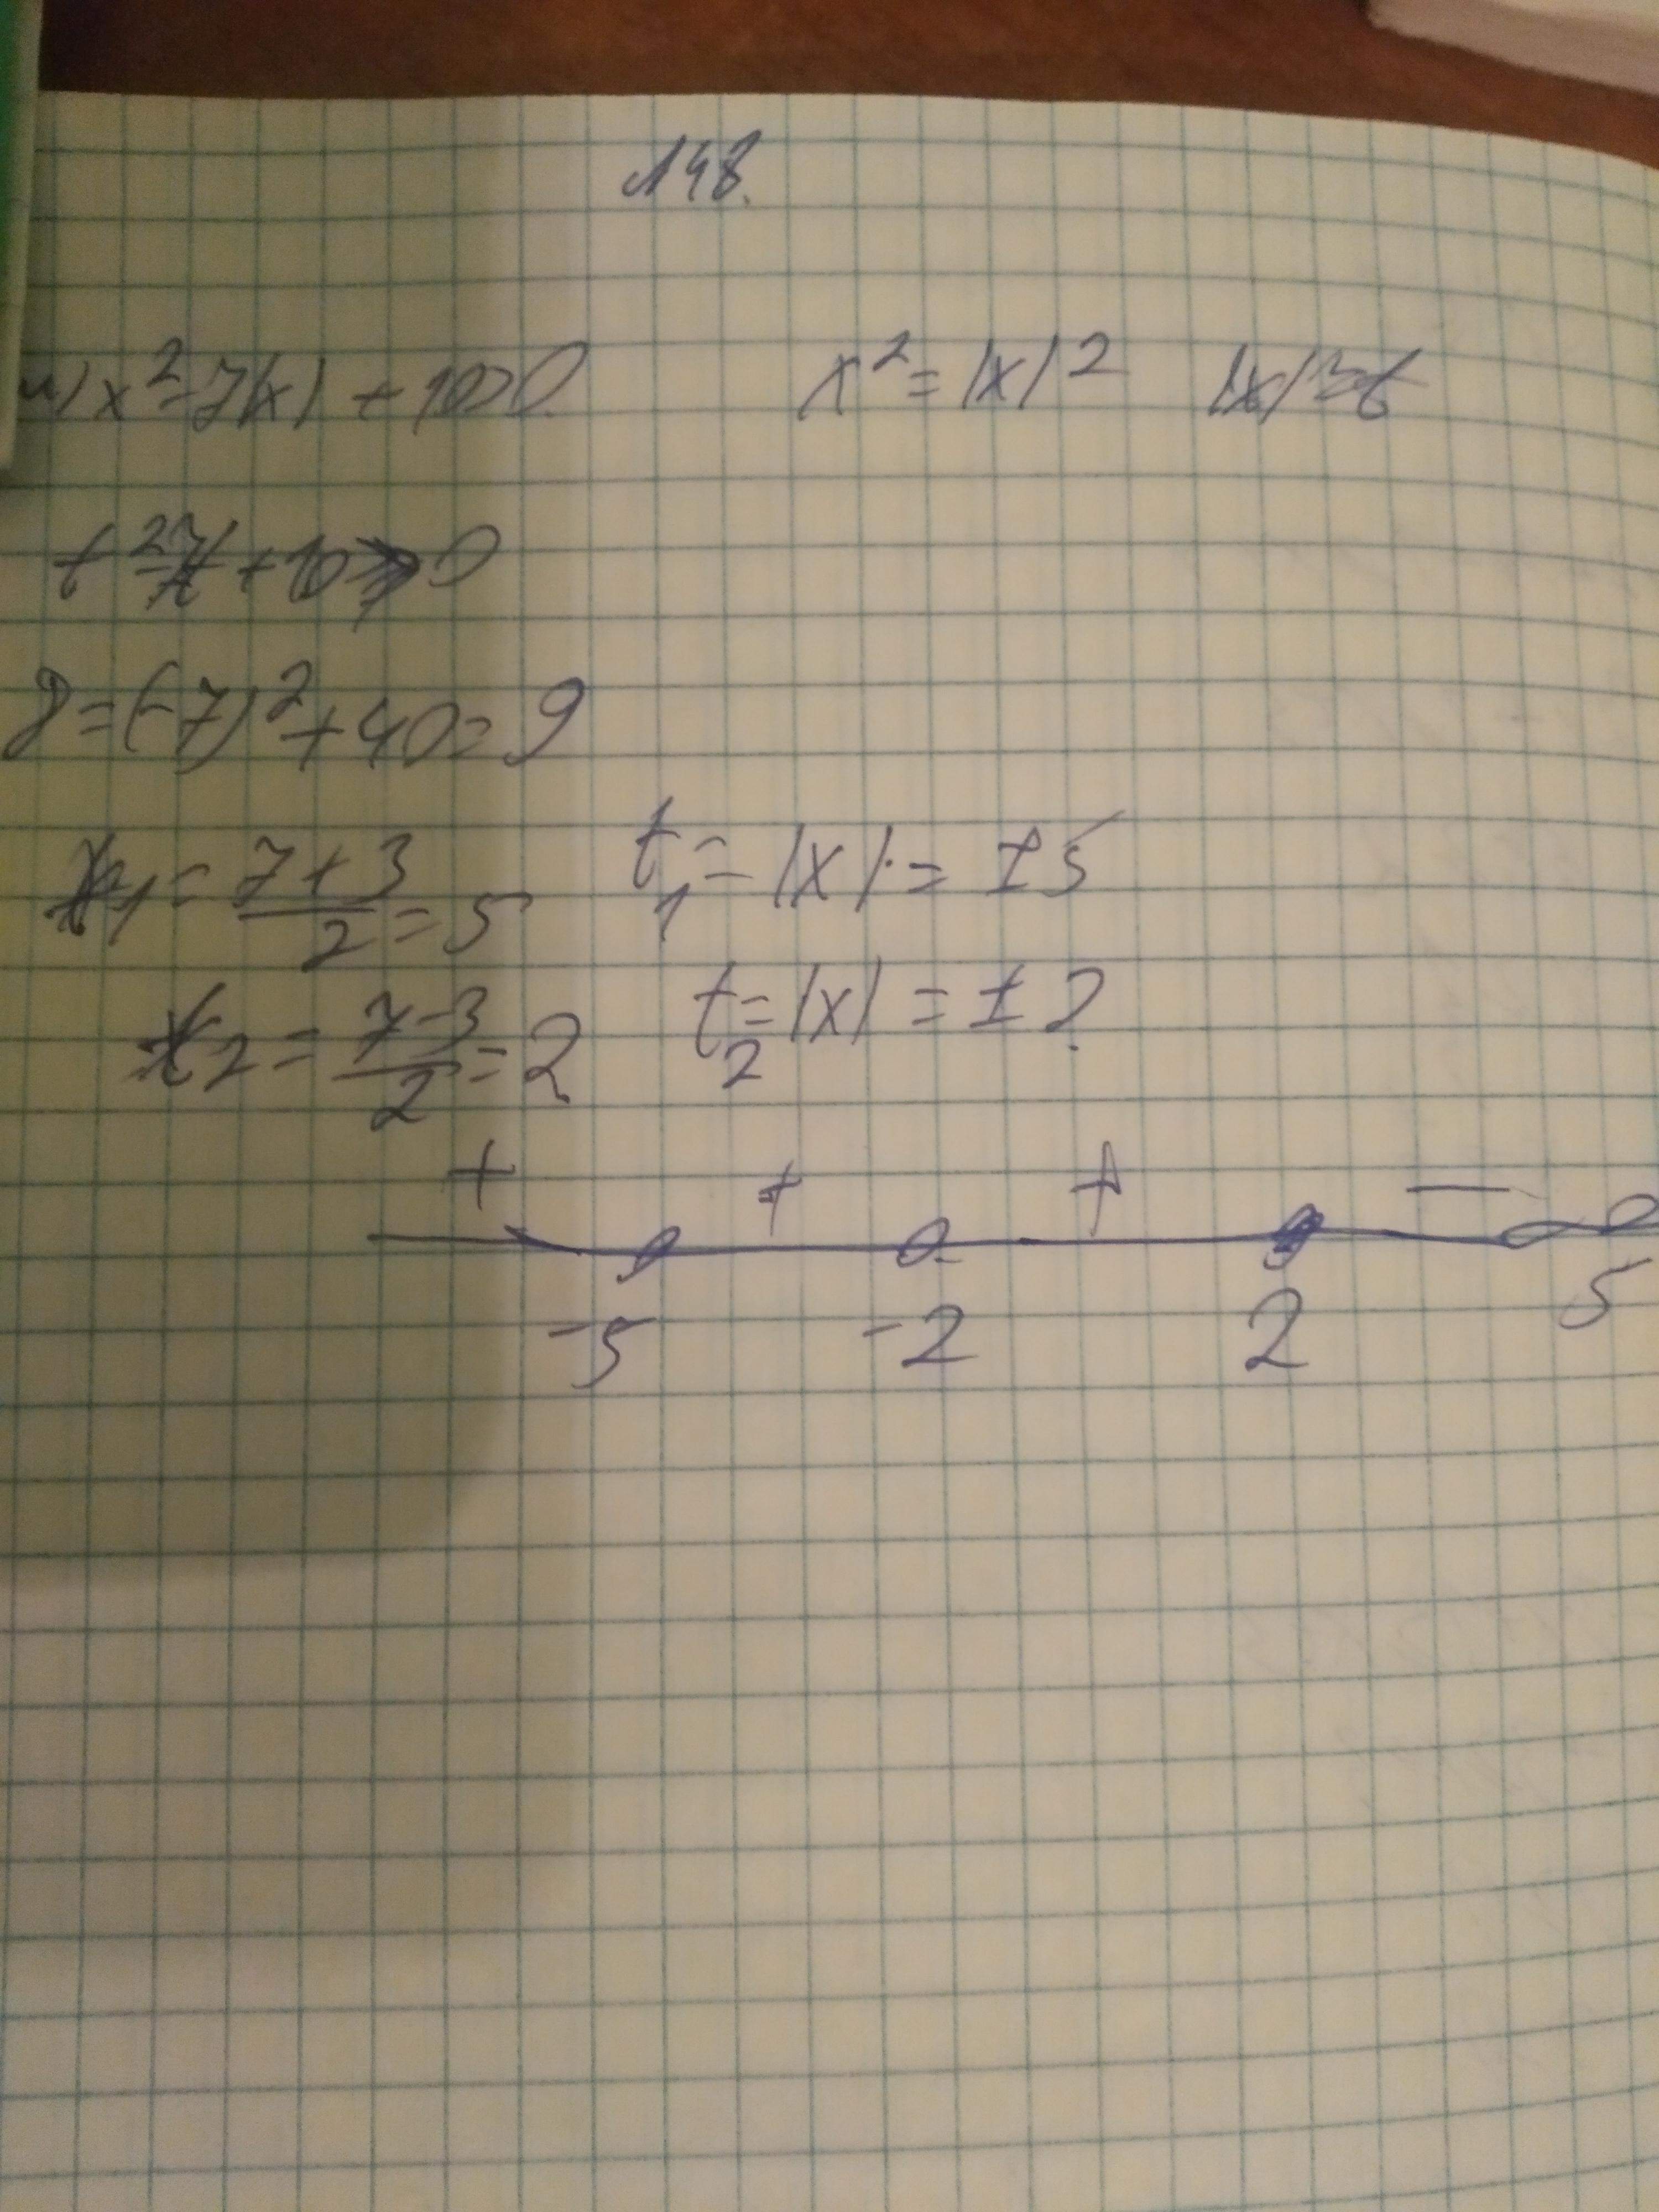 148.
x²-7|x|+10>0 x²=|x|² |x|=t
t²-7t+10>0
D=(-7)²+40=9
t₁=7+3/2=5 t₁=|x|=±5
t₂=7-3/2=2 t₂=|x|=±2
+ + + −
-5 -2 2 5